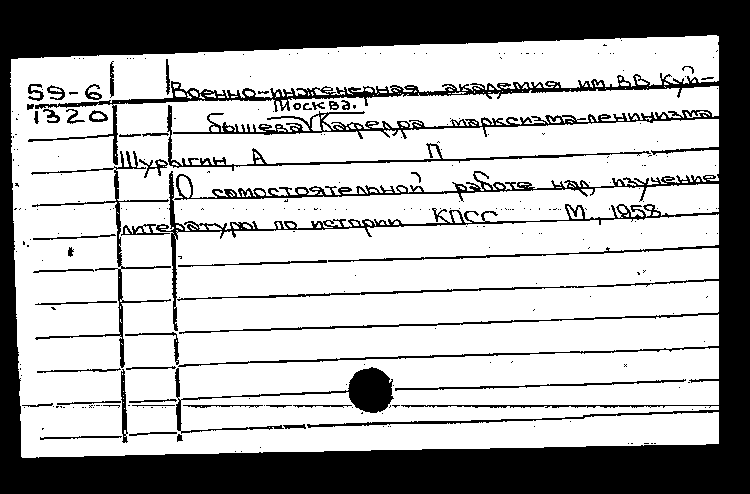 59-6 Военно-инженерная академия им. В.В. Куй-
Москва.
1320 бышева Кафедра марксизма-ленинизма
Шурыгин, А П
О самостоятельной работе над изучение
литературы по истории КПСС М., 1958.